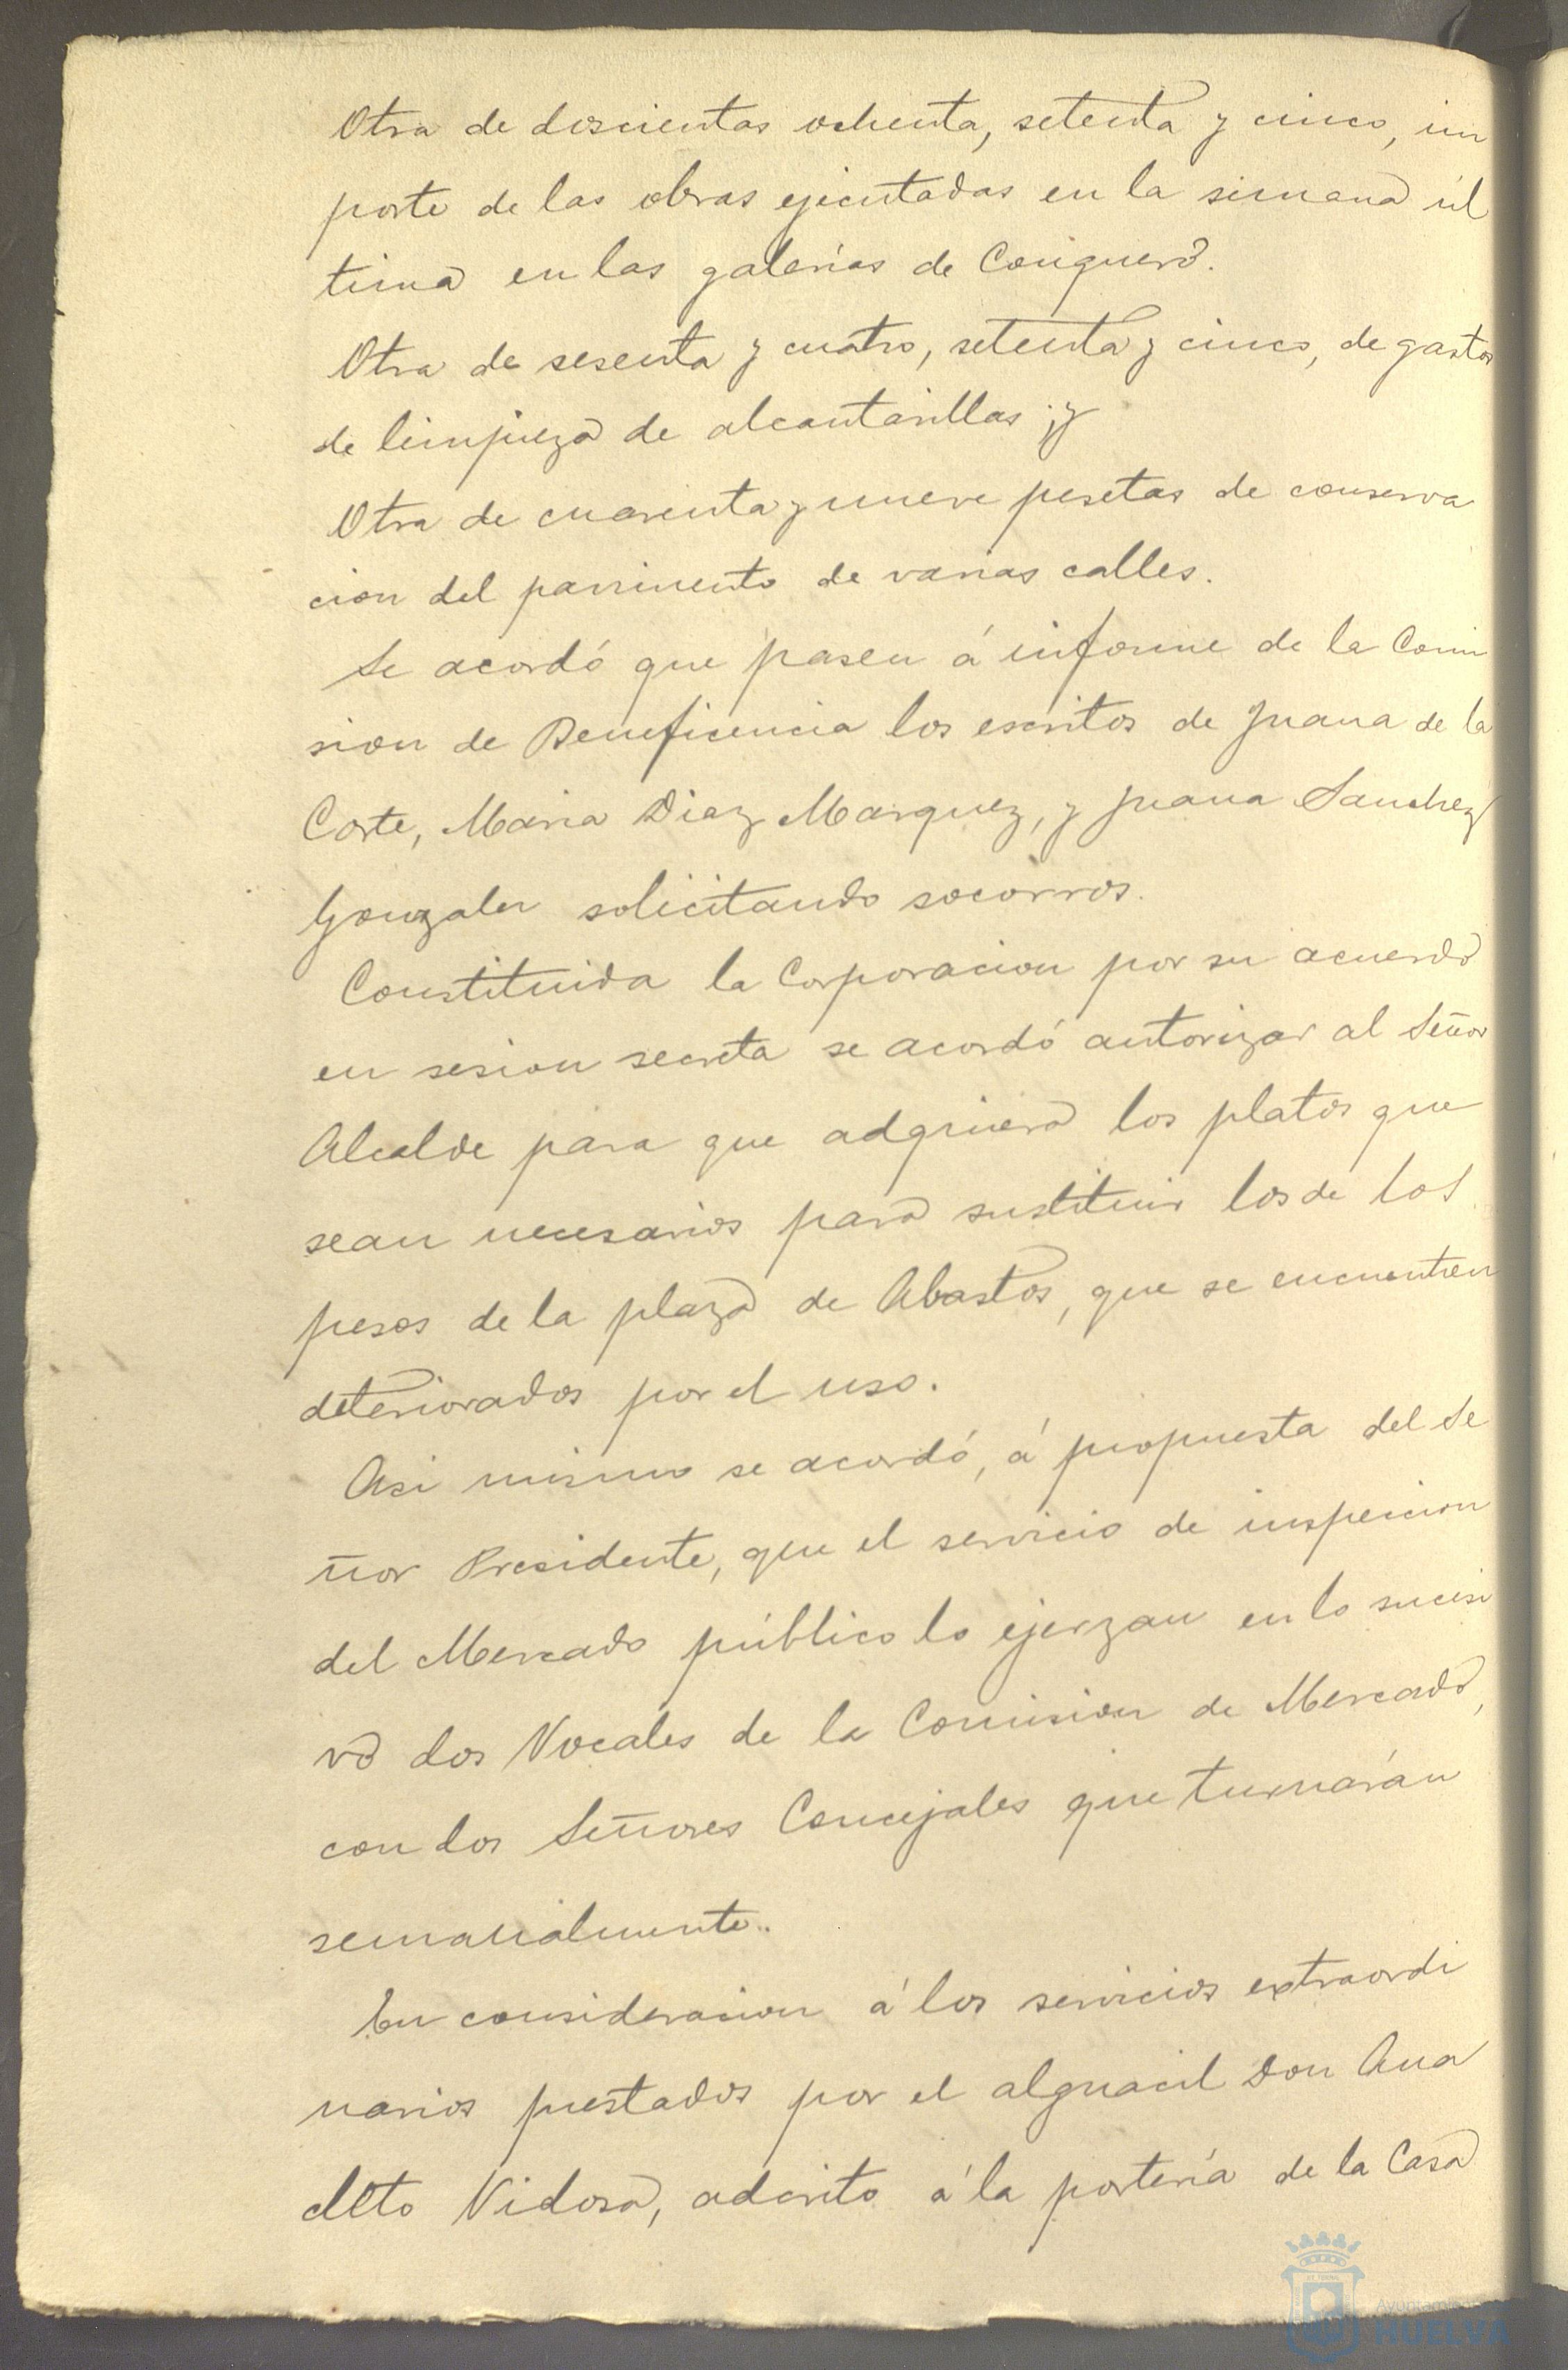 Otra de doscientas ochenta, setenta y cinco, im
porte de las obras ejecutadas en la semana úl
tima en las galerías de Conquero.
Otra de sesenta y cuatro, setenta y cinco, de gastos
de limpieza de alcantarillas; y
Otra de cuarenta y nueve pesetas de conserva
cion del pavimento de varias calles.
Se acordó que pasen á informe de la Comi
sion de Beneficencia los escritos de Juana de la
Corte, Maria Diaz Marquez, y Juana Sanchez
Gonzalez solicitando socorros.
Constituida la Corporacion por su acuerdo
en sesion secreta se acordó autorizar al Señor
Alcalde para que adquiera los platos que
sean necesarios para sustituir los de los
pesos de la plaza de Abastos, que se encuentren
deteriorados por el uso.
Asi mismo se acordó, á propuesta del Se
ñor Presidente, que el servicio de inspeccion
del Mercado público lo ejerzan en lo sucesi
vo dos Vocales de la Comision de Mercado,
con dos Señores Concejales que turnarán
semanalmente.
En consideracion á los servicios extraordi
narios prestados por el alguacil Don Ana
cleto Vidosa, adcrito á la portería de la Casa
Ayuntamiento
HUELVA